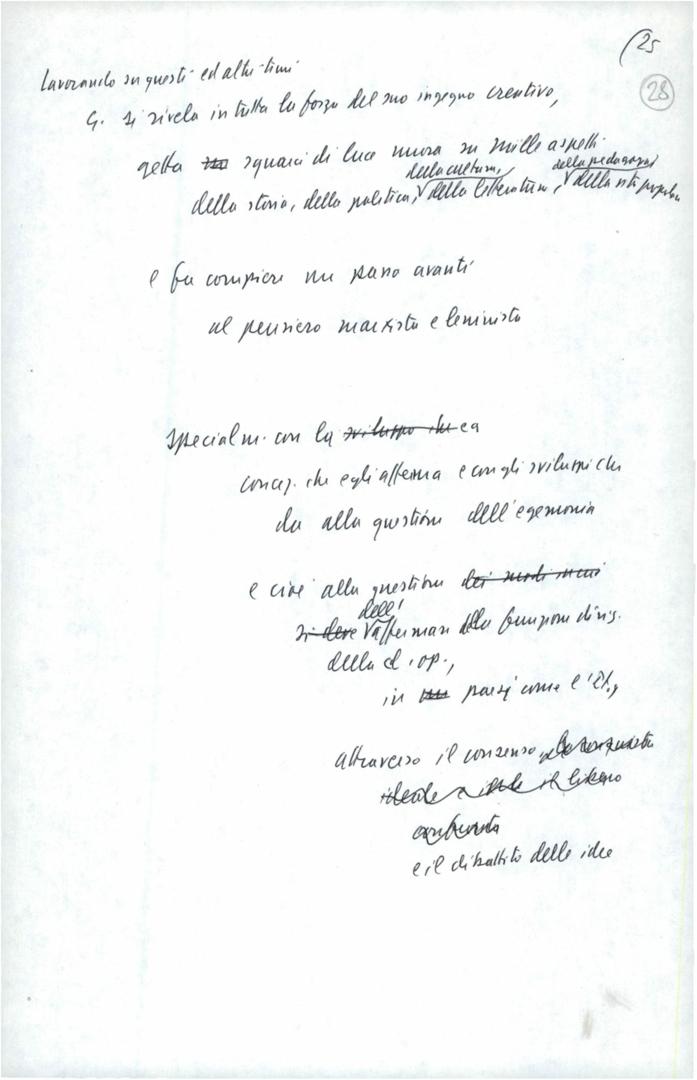 (25
28
Lavorando su questi ed altri temi
G. si rivela in tutta la forza del suo ingegno creativo,
getta squarci di luce nuova su mille aspetti
della cultura, della pedagogia
della storia, della politica, della letteratura, della vita popolare
e fa compiere un passo avanti
al pensiero marxista e leninista
specialm. con la sviluppo che ea
concez. che egli afferma e con gli sviluppi che
da alla questione dell'egemonia
e cioè alla questione dei modi in cui
dell'
si deve affermare della funzione dirig.
della cl. op.,
in paesi come l'It.,
attraverso il consenso, la conquista
ideale il libero
confronto
e il dibattito delle idee